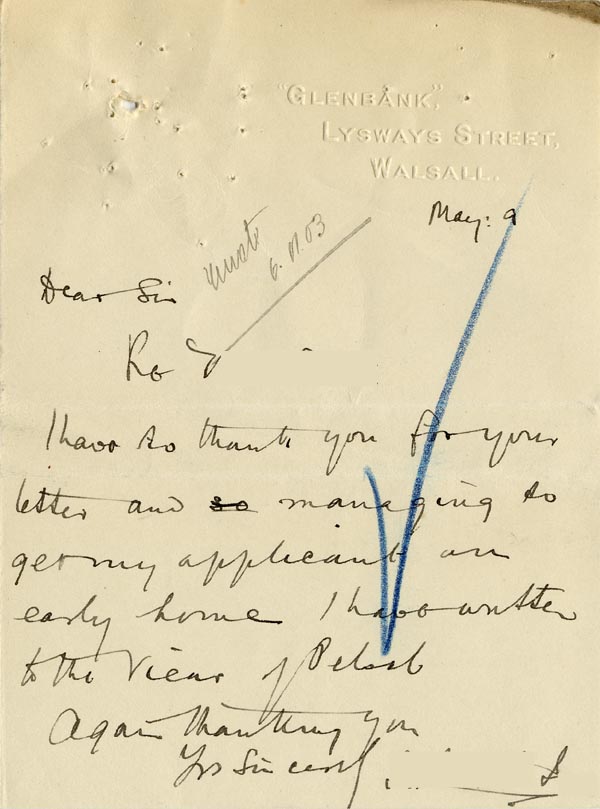 "GLENBANK,"
LYSWAYS STREET,
WALSALL.
May: 9
6.11.03
Dear Sir
Re
I have to thank you for your
letter and so managing to
get my applicant an
early home I have written
to the Vicar of Pelsall
Again thanking you
Yrs Sincerely